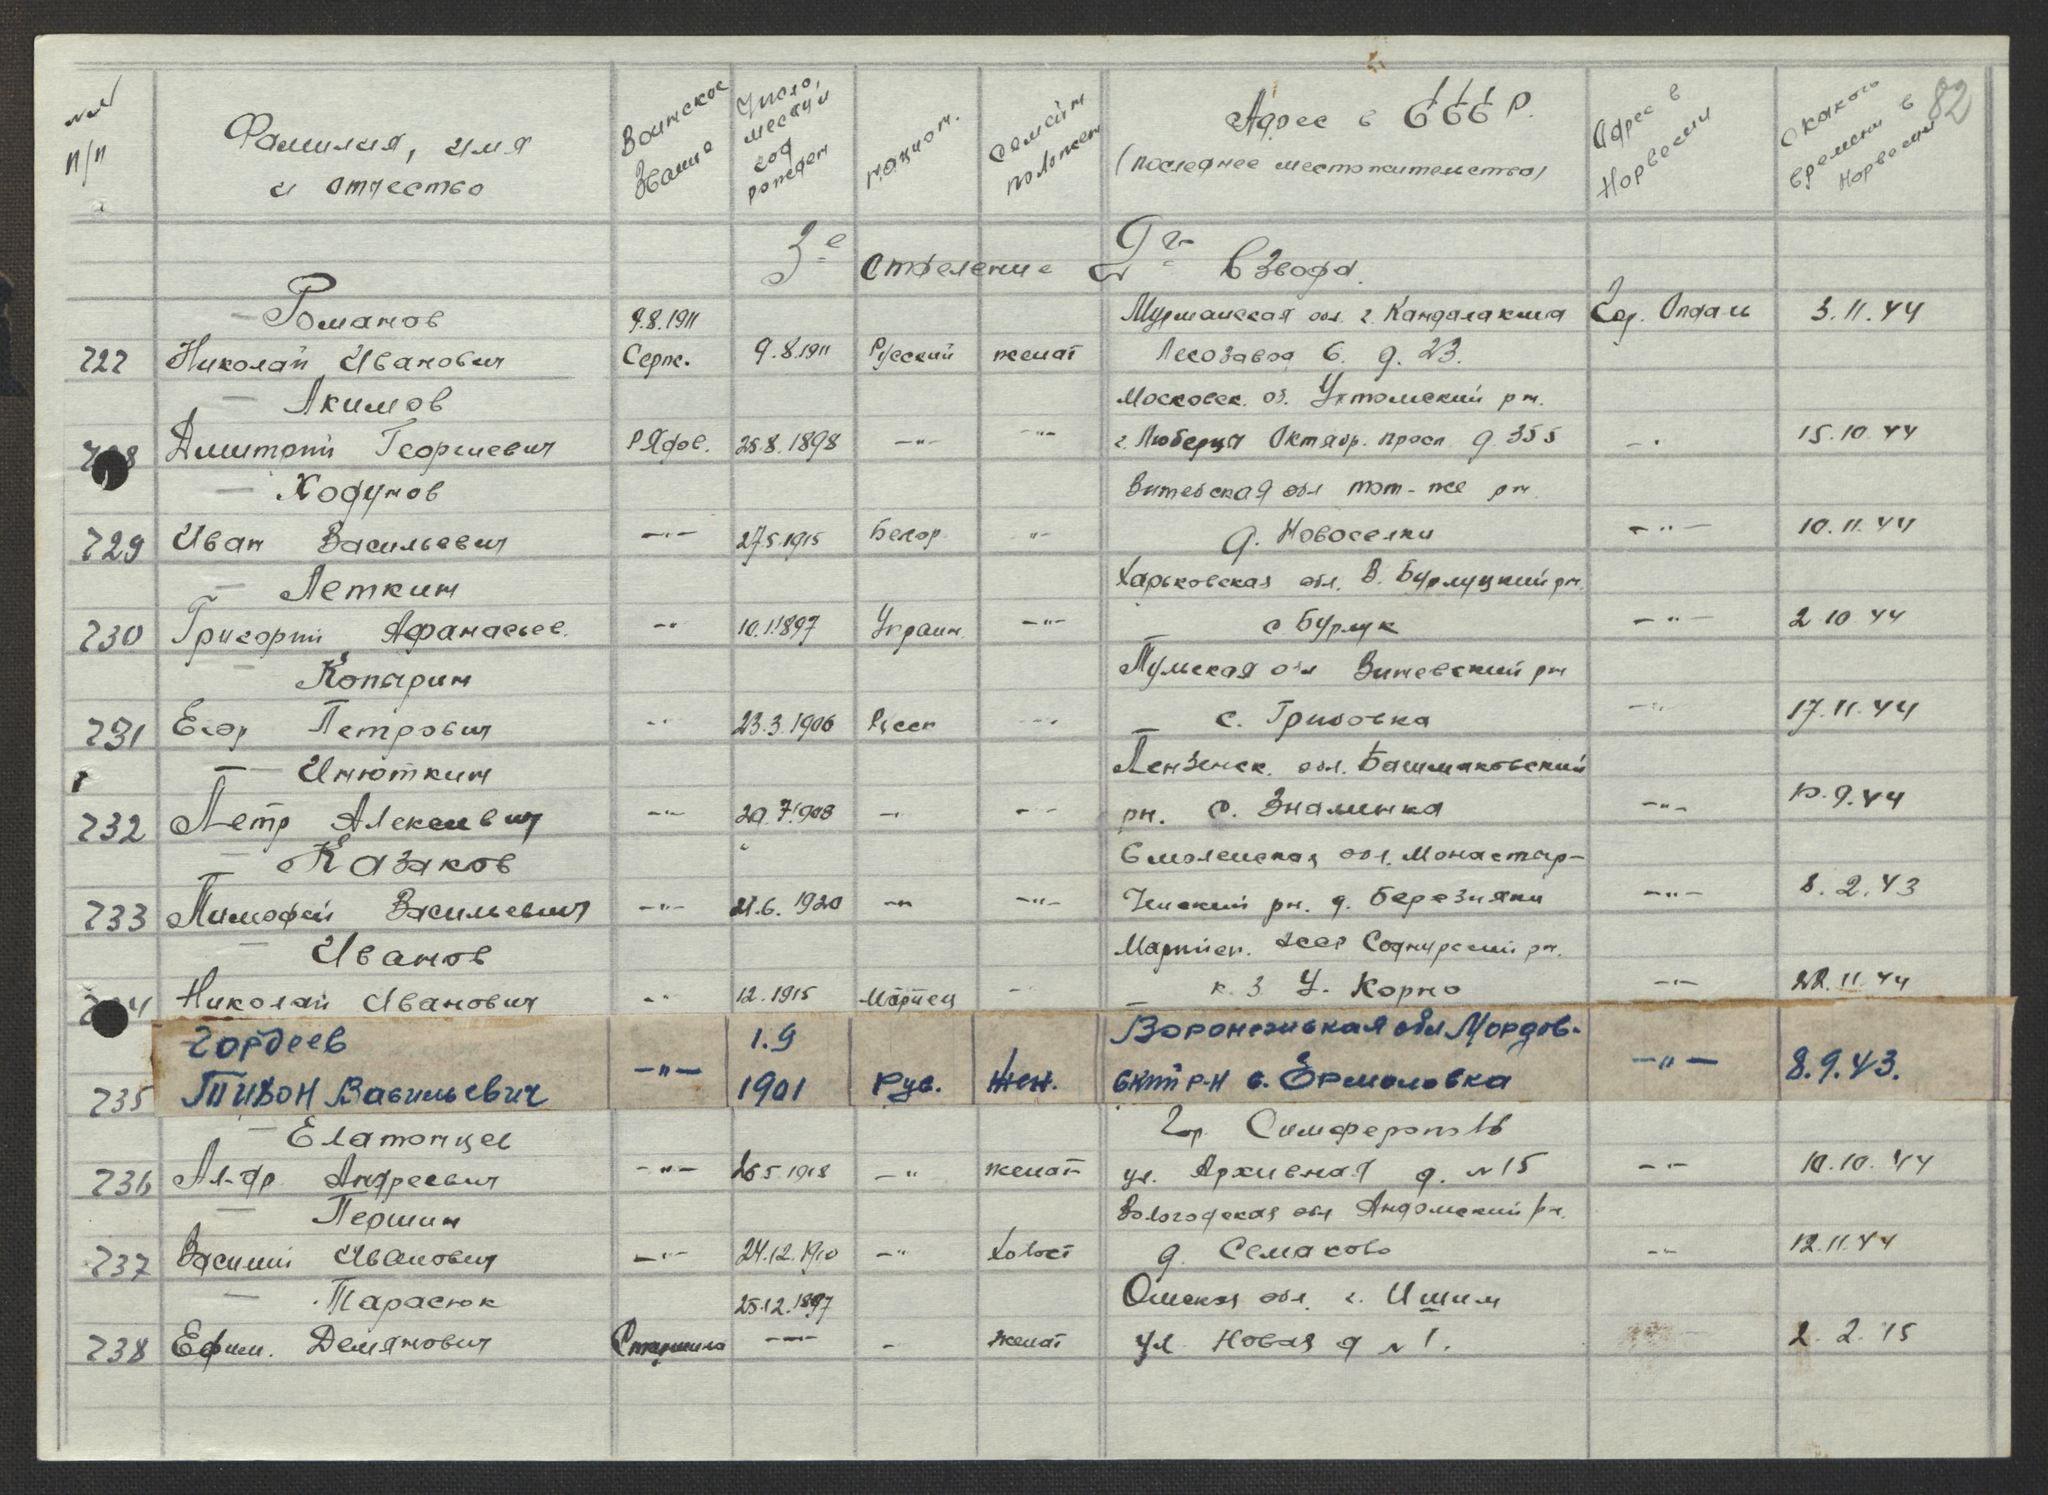 82
№№ п/п Фамилия, имя и отчество Воинское звание Число, месяц и год рожден национ. Семейн положен Адрес в СССР. (последнее местожительство) Адрес в Норвегии С какого времени в Норвегии
3е отделение 2го взвода.
Романов 9.8.1911 Мурманская обл. г. Кандалакша Гор. Опдаль 3.11.44
727 Николай Иванович Серж. 9.8.1911 Русский женат Лесозавод 6. д. 23.
Акимов Московск. об. Ухтомский рн.
728 Дмитрий Георгиевич Рядов. 25.8.1898 -"- -"- г. Люберцы Октябр. просп д. 355 -"- 15.10.44
Ходунов Витебская обл тот-же рн.
729 Иван Васильевич -"- 27.5.1915 Белор. -"- д. Новоселки -"- 10.11.44
Леткин Харьковская обл. В. Бурлуцкий рн.
730 Григорий Афанасьев. -"- 10.1.1897 Украин. -"- с Бурлук -"- 2 10 44
Копырин Тульская обл рн
731 Егор Петрович -"- 23.3.1906 Русск -"- с. Грибовка -"- 17.11.44
Инюткин Пензенск. обл. Башмаковский
732 Петр Алексеевич -"- 29.7.1908 -"- -"- рн. с. Знаминка -"- 10.9.44
Казаков Смоленская обл. Монастыр-
733 Тимофей Васильевич -"- 21.6.1920 -"- -"- щинский рн. д. Березняки -"- 8.2.43
Иванов Марийск. рн.
734 Николай Иванович -"- 12.1915 Мариец -"- к. з У. Корно -"- 22.11.44
Гордеев 1.9 Воронежская обл Мордов-
735 Тихон Васильевич -"- 1901 Рус. Жен. ский р-н с. Ермоловка -"- 8.9.43.
Елатонцев Гор. Симферополь
736 Ал-др. Андреевич -"- 26.5.1918 -"- женат ул. Архивная д. №15 -"- 10.10.44
Першин Вологодская обл Андомский рн.
737 Василий Иванович -"- 24.12.1910 -"- Холост д. Семаково -"- 12.11.44
Тарасюк 25.12.1897 Омская обл. г. Ишим
738 Ефим. Демянович Старшина -"- - женат ул Новая д №1. 2.2.15